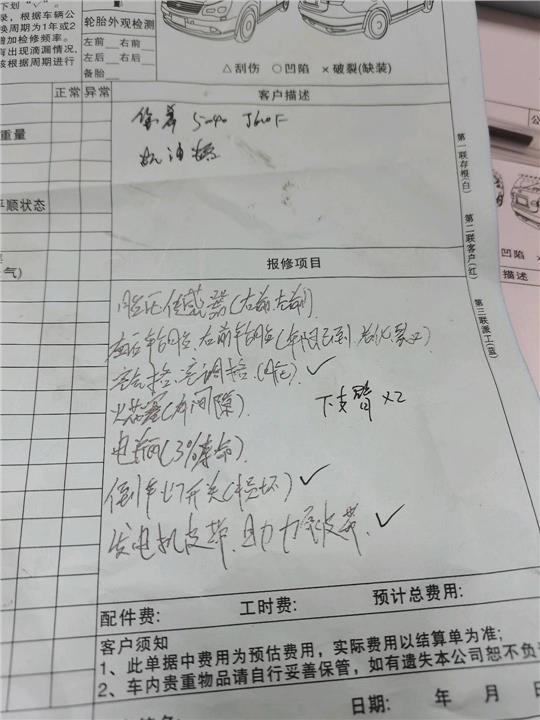 下划"✓"。
录，根据车辆公
换周期为1年或2
增加检修频率。
有出现滴漏情况,
该根据周期进行
轮胎外观检测
左前 右前
左后 右后
备胎
△刮伤 ○凹陷 ×破裂(缺装)
正常 异常
客户描述
重量
保养 5-40
机油
平顺状态
气)
第一联存根(白)
第二联客户(红)
第三联派工(蓝)
凹陷 ×
描述
报修项目
胎压传感器(右前.左前)
左后轮胎.右前轮胎(年限已到.老化裂纹)
空气格.空调格.(脏)✓
火花塞(有间隙)
下支臂×2
电瓶(3%寿命).
倒车灯开关(损坏)✓
发电机皮带.助力泵皮带.✓
配件费: 工时费: 预计总费用:
客户须知
1、此单据中费用为预估费用，实际费用以结算单为准;
2、车内贵重物品请自行妥善保管，如有遗失本公司恕不负
日期: 年 月 日